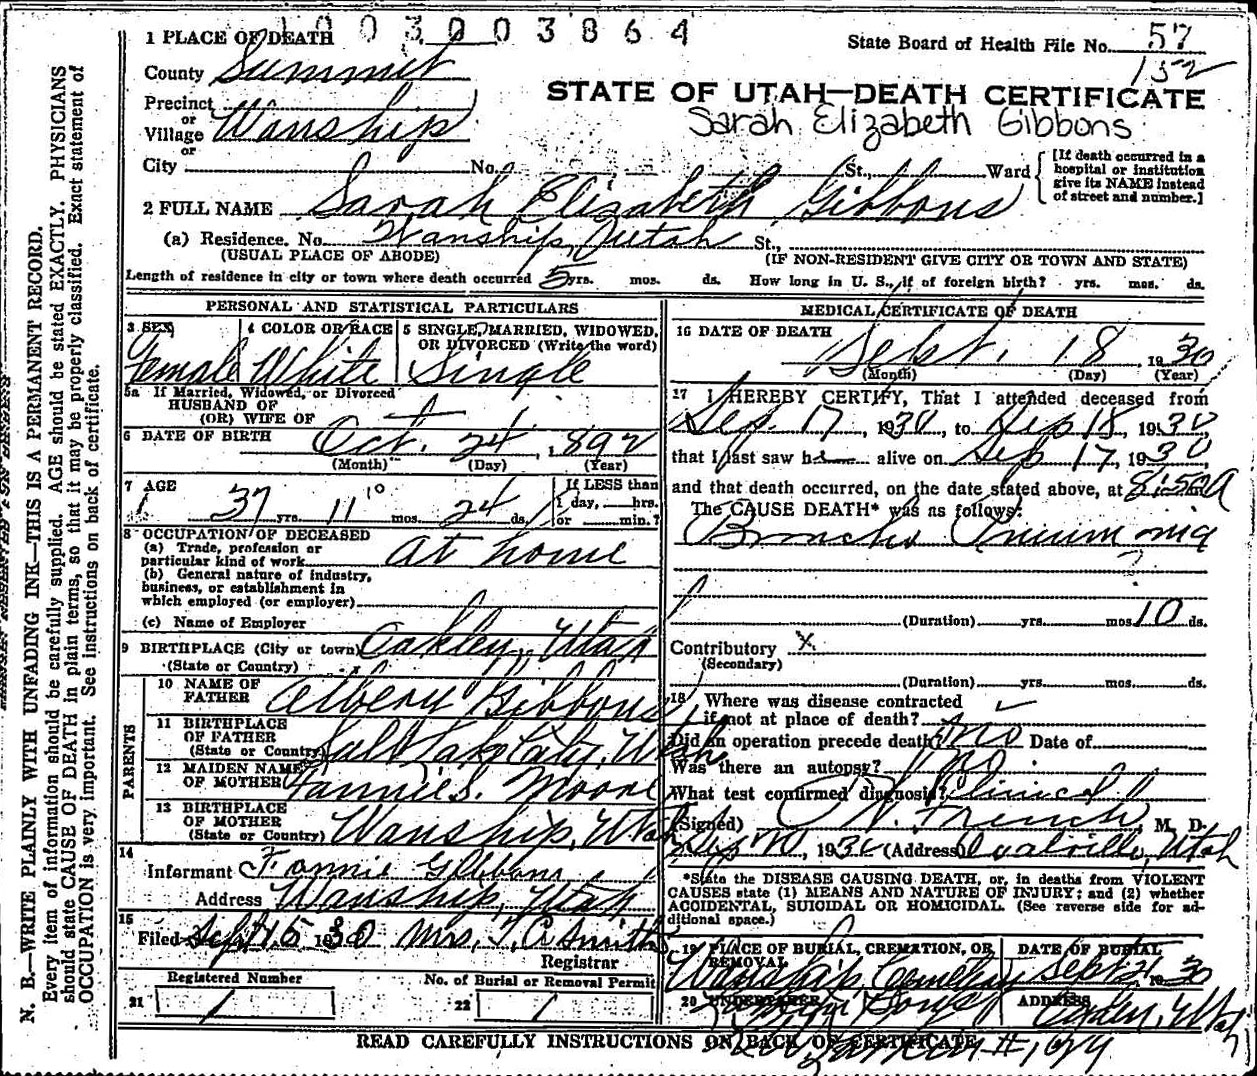 1003003864
State Board of Health File No. 57
152
STATE OF UTAH—DEATH CERTIFICATE
Sarah Elizabeth Gibbons
1 PLACE OF DEATH
County Summit
Precinct
or
Village Wanship
or
City No. St., Ward
[If death occurred in a
hospital or institution
give its NAME instead
of street and number.]
2 FULL NAME Sarah Elizabeth Gibbons
(a) Residence. No. Wanship, Utah St.,
(USUAL PLACE OF ABODE) (IF NON-RESIDENT GIVE CITY OR TOWN AND STATE)
Length of residence in city or town where death occurred 5 yrs. mos. ds. How long in U. S., if of foreign birth? yrs. mos. ds.
PERSONAL AND STATISTICAL PARTICULARS
3 SEX 4 COLOR OR RACE 5 SINGLE, MARRIED, WIDOWED,
OR DIVORCED (Write the word)
Female White Single
5a If Married, Widowed, or Divorced
HUSBAND OF
(OR) WIFE OF
6 DATE OF BIRTH Oct. 24, 1892
(Month) (Day) (Year)
7 AGE If LESS than
1 day, hrs.
or min.?
37 yrs. 11 10 mos. 24 ds.
8 OCCUPATION OF DECEASED
(a) Trade, profession or
particular kind of work at home
(b) General nature of industry,
business, or establishment in
which employed (or employer)
(c) Name of Employer
9 BIRTHPLACE (City or town) Oakley, Utah
(State or Country)
PARENTS
10 NAME OF
FATHER Gibbons
11 BIRTHPLACE
OF FATHER
(State or Country) Salt Lake City, Utah
12 MAIDEN NAME
OF MOTHER Fannie S. Moore
13 BIRTHPLACE
OF MOTHER
(State or Country) Wanship, Utah
14
Informant Fannie Gibbons
Address Wanship, Utah
15
Filed Sept 15 1930 Mrs. T. A. Smith
Registrar
Registered Number No. of Burial or Removal Permit
21 1 22 1
MEDICAL CERTIFICATE OF DEATH
16 DATE OF DEATH
Sept. 18, 1930
(Month) (Day) (Year)
17 I HEREBY CERTIFY, That I attended deceased from
Sep. 17, 1930, to Sep 18, 1930
that I last saw h alive on Sep 17, 1930,
and that death occurred, on the date stated above, at 8:50 A
The CAUSE DEATH* was as follows:
Broncho Pneumonia
?
(Duration) yrs. mos. 10 ds.
Contributory x
(Secondary)
(Duration) yrs. mos. ds.
18 Where was disease contracted
if not at place of death?
Did an operation precede death? no Date of
Was there an autopsy? no
What test confirmed diagnosis? Clinical
(Signed) French, M. D.
Sep, 1930 (Address) Coalville, Utah
*State the DISEASE CAUSING DEATH, or, in deaths from VIOLENT
CAUSES state (1) MEANS AND NATURE OF INJURY; and (2) whether
ACCIDENTAL, SUICIDAL OR HOMICIDAL. (See reverse side for ad-
ditional space.)
19 PLACE OF BURIAL, CREMATION, OR
REMOVAL DATE OF BURIAL
Wanship Cemetery Sept 21, 1930
20 UNDERTAKER ADDRESS
Ogden, Utah
READ CAREFULLY INSTRUCTIONS ON BACK OF CERTIFICATE
N. B.—WRITE PLAINLY WITH UNFADING INK—THIS IS A PERMANENT RECORD.
Every item of information should be carefully supplied. AGE should be stated EXACTLY. PHYSICIANS
should state CAUSE OF DEATH in plain terms, so that it may be properly classified. Exact statement of
OCCUPATION is very important. See instructions on back of certificate.